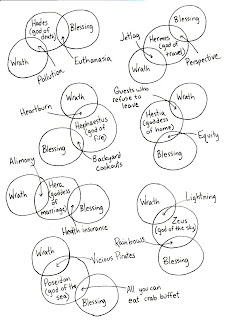 Hades
(god of
death)
Blessing
Wrath
Pollution
Euthanasia
Jetlag
Hermes
(god of
travel)
Blessing
Wrath
Perspective
Heartburn
Wrath
Hephaestus
(god of
fire)
Blessing
Backyard
Cookouts
Guests who
refuse to
leave
Wrath
Hestia
(goddess
of home)
Equity
Blessing
Alimony
Wrath
Hera
(goddess of
marriage)
Blessing
Health insurance
Wrath
Lightning
Zeus
(god of the sky)
Rainbows
Blessing
Wrath
Vicious Pirates
Poseidon
(god of the
sea)
Blessing
All you can
eat crab buffet